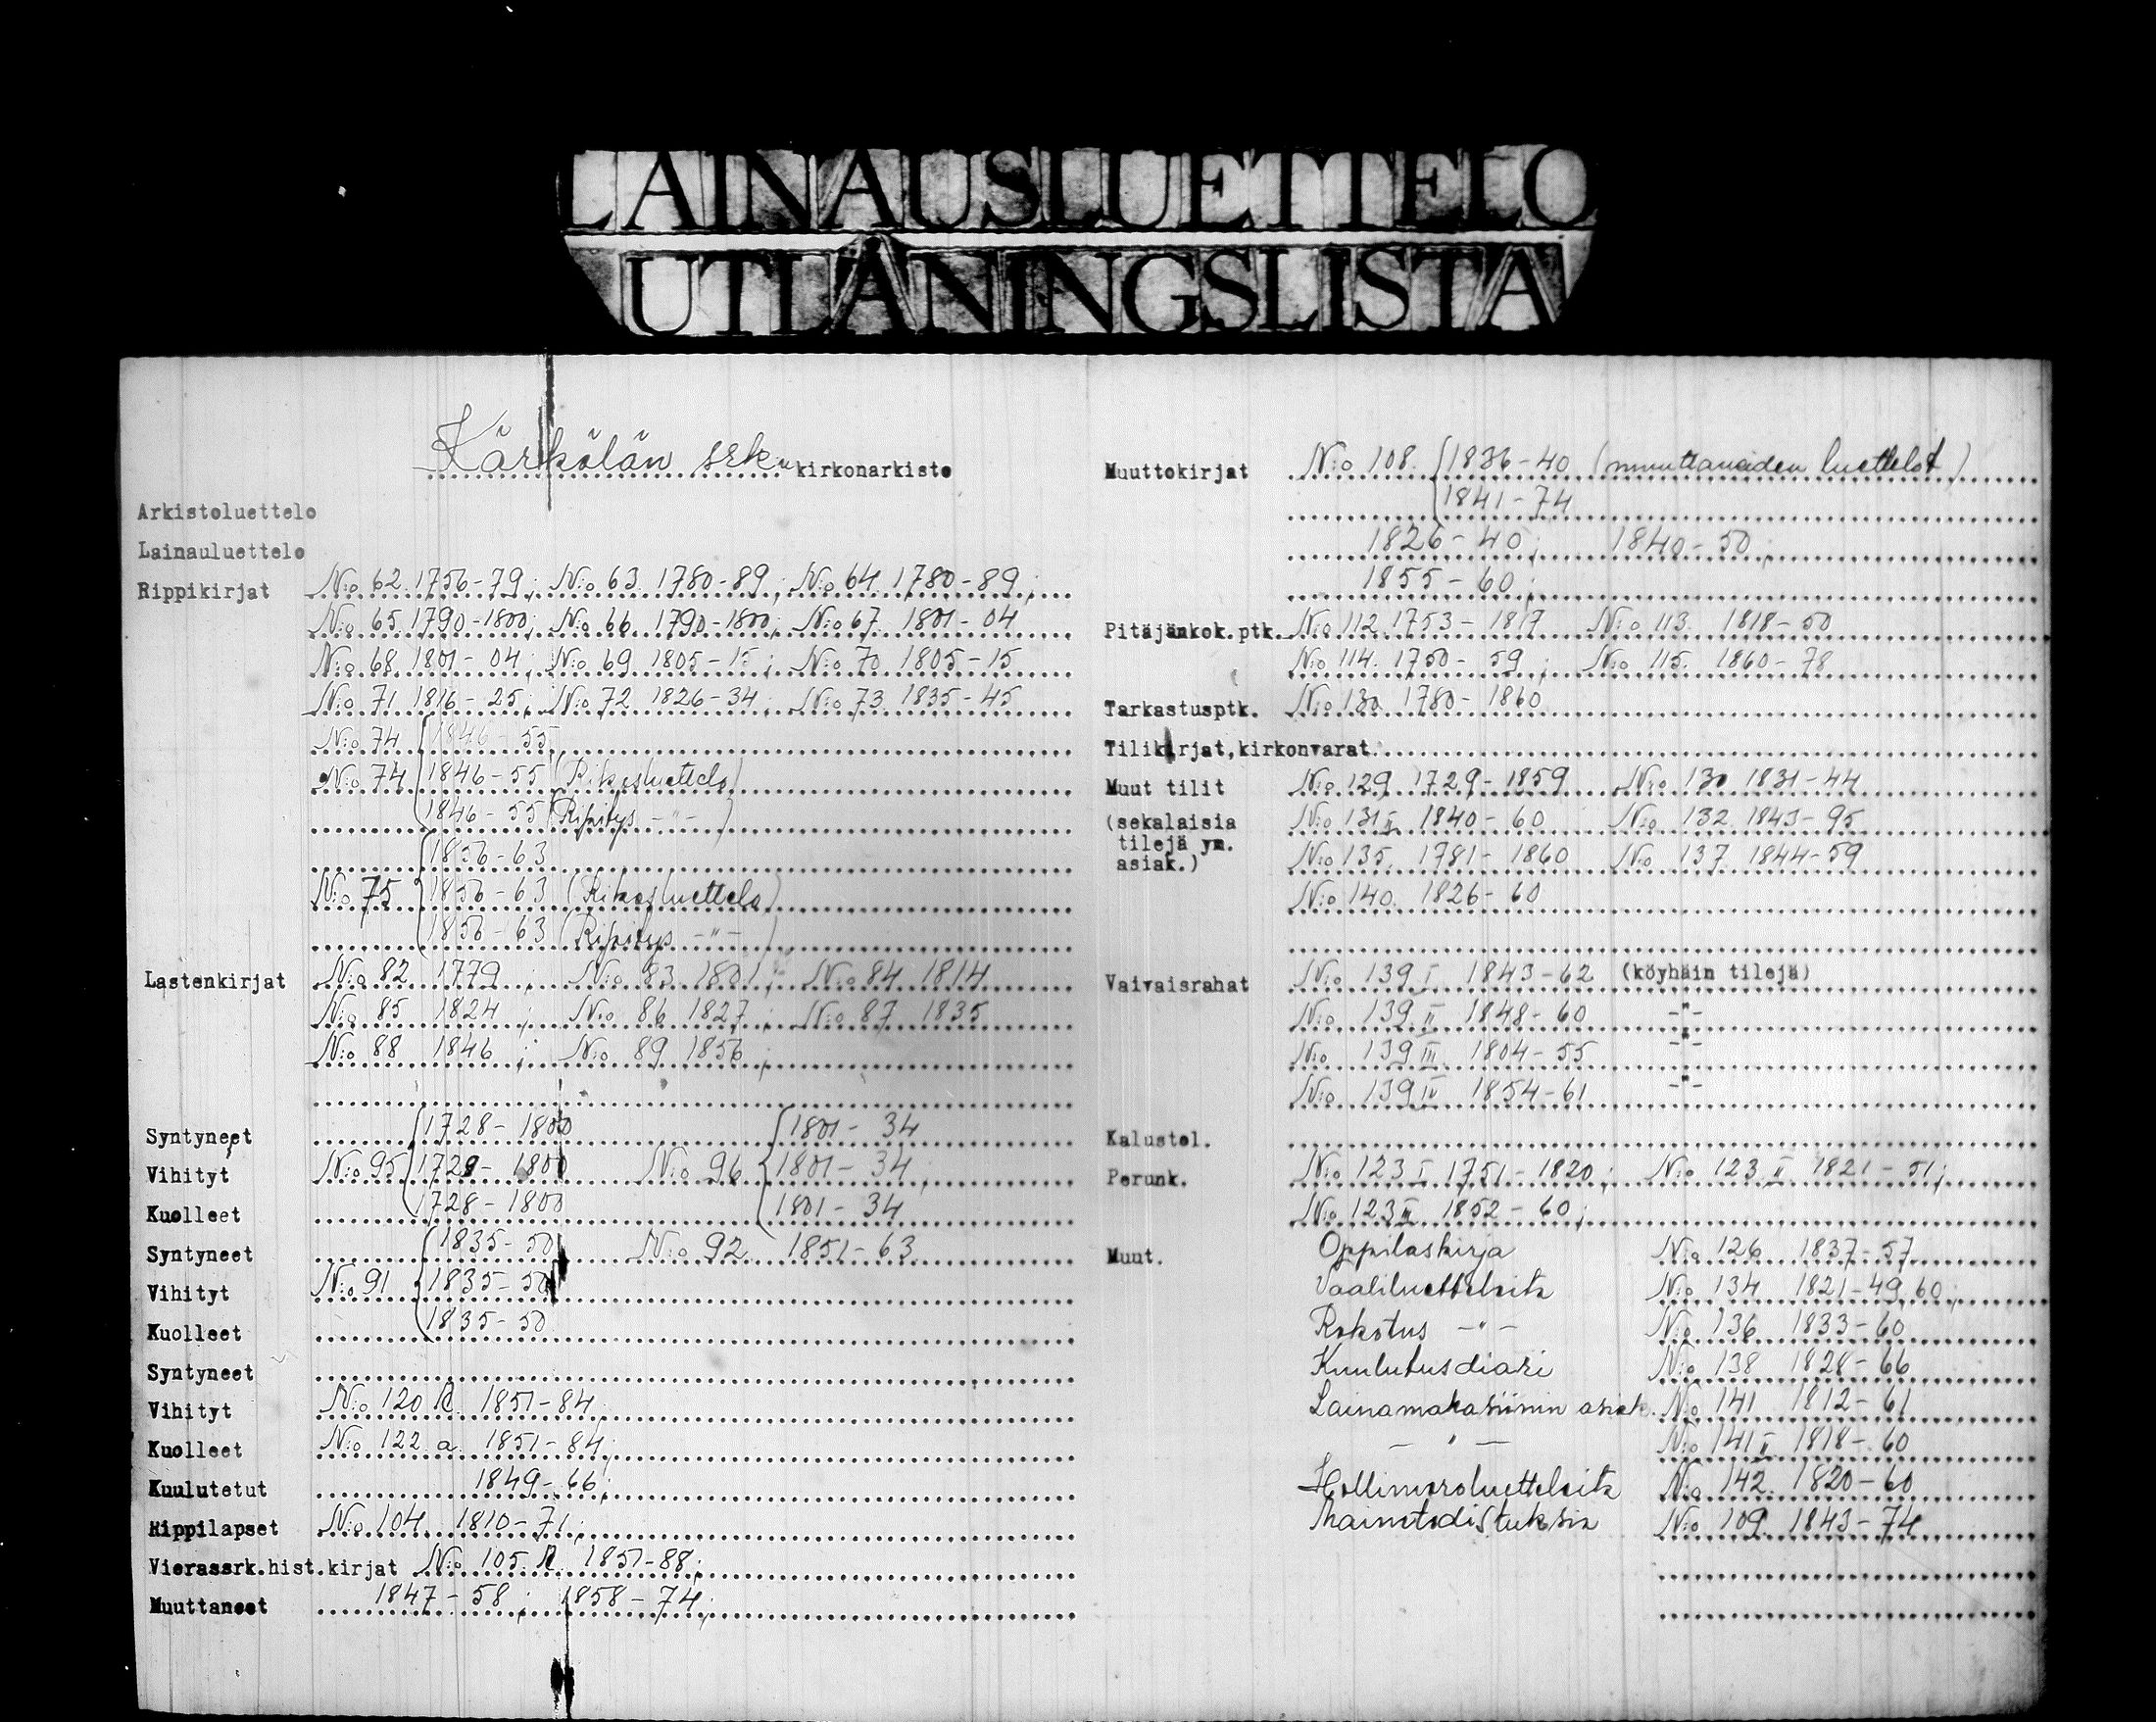 LAINAUSLUETTELO
UTLÅNINGSLISTA
Kärkölän srk:n kirkonarkisto
Arkistoluettelo
Lainauluettelo
Rippikirjat N:o 62 1756-79; N:o 63 1780-89; N:o 64 1780-89;
N:o 65 1790-1800; N:o 66 1790-1800; N:o 67 1801-04
N:o 68 1801-04; N:o 69 1805-15; N:o 70 1805-15
N:o 71 1816-25; N:o 72 1826-34; N:o 73 1835-45
N:o 74 1846-55
N:o 74 1846-55 (Rikosluettelo)
1846-55 (Ripitys -"-)
1856-63
N:o 75 1856-63 (Rikosluettelo)
1856-63 (Ripitys -"-)
Lastenkirjat N:o 82 1779; N:o 83 1801; N:o 84 1814
N:o 85 1824; N:o 86 1827; N:o 87 1835
N:o 88 1846; N:o 89 1856;
Syntyneet 1728-1800 1801-34
Vihityt N:o 95 1729-1800 N:o 96 1801-34;
Kuolleet 1728-1800 1801-34
Syntyneet 1835-50 N:o 92 1851-63
Vihityt N:o 91 1835-50
Kuolleet 1835-50
Syntyneet
Vihityt N:o 120 1851-84
Kuolleet N:o 122 a 1851-84;
Kuulutetut 1849-66;
Rippilapset N:o 104 1810-71;
Vierassrk.hist.kirjat N:o 105 1851-88;
Muuttaneet 1847-58; 1858-74;
Muuttokirjat N:o 108 1836-40 (muuttaneiden luettelot)
1841-74
1826-40; 1840-50;
1855-60;
Pitäjänkok.ptk. N:o 112 1753-1817 N:o 113 1818-50
N:o 114 1750-59; N:o 115 1860-78
Tarkastusptk. N:o 130 1780-1860
Tilikirjat,kirkonvarat.
Muut tilit N:o 129 1729-1859 N:o 130 1831-44
(sekalaisia N:o 131 II 1840-60 N:o 132 1843-95
tilejä ym.
asiak.) N:o 135 1781-1860 N:o 137 1844-59
N:o 140 1826-60
Vaivaisrahat N:o 139 I 1843-62 (köyhäin tilejä)
N:o 139 II 1848-60 -"-
N:o 139 III 1804-55 -"-
N:o 139 IV 1854-61 -"-
Kalustol.
Perunk. N:o 123 I 1751-1820; N:o 123 II 1821-51;
N:o 123 III 1852-60;
Muut. Oppilaskirja N:o 126 1837-57
Vaaliluetteloita N:o 134 1821-49,60;
Rokotus -"- N:o 136 1833-60
Kuulutusdiari N:o 138 1828-66
Lainamakasiinin asiak. N:o 141 1812-61
-"- N:o 141 II 1818-60
Hollimoroluetteloita N:o 142 1820-60
Mainetodistuksia N:o 109 1843-74